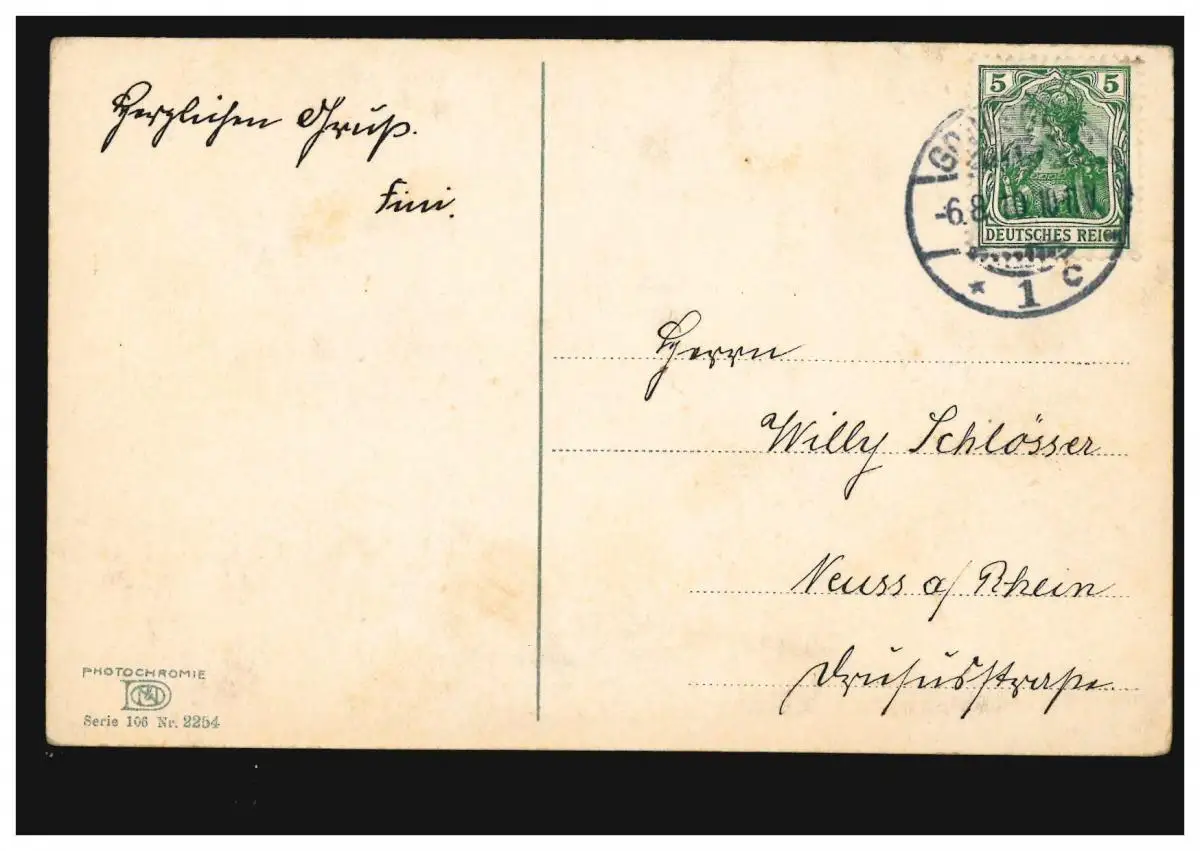 Herzlichen Gruß.
Fini.
5 5
DEUTSCHES REICH
-6.8. 10-11V.
* 1 c
Herrn
Willy Schlösser
Neuss a/ Rhein
Drususstraße.
PHOTOCHROMIE
Serie 106 Nr. 2254